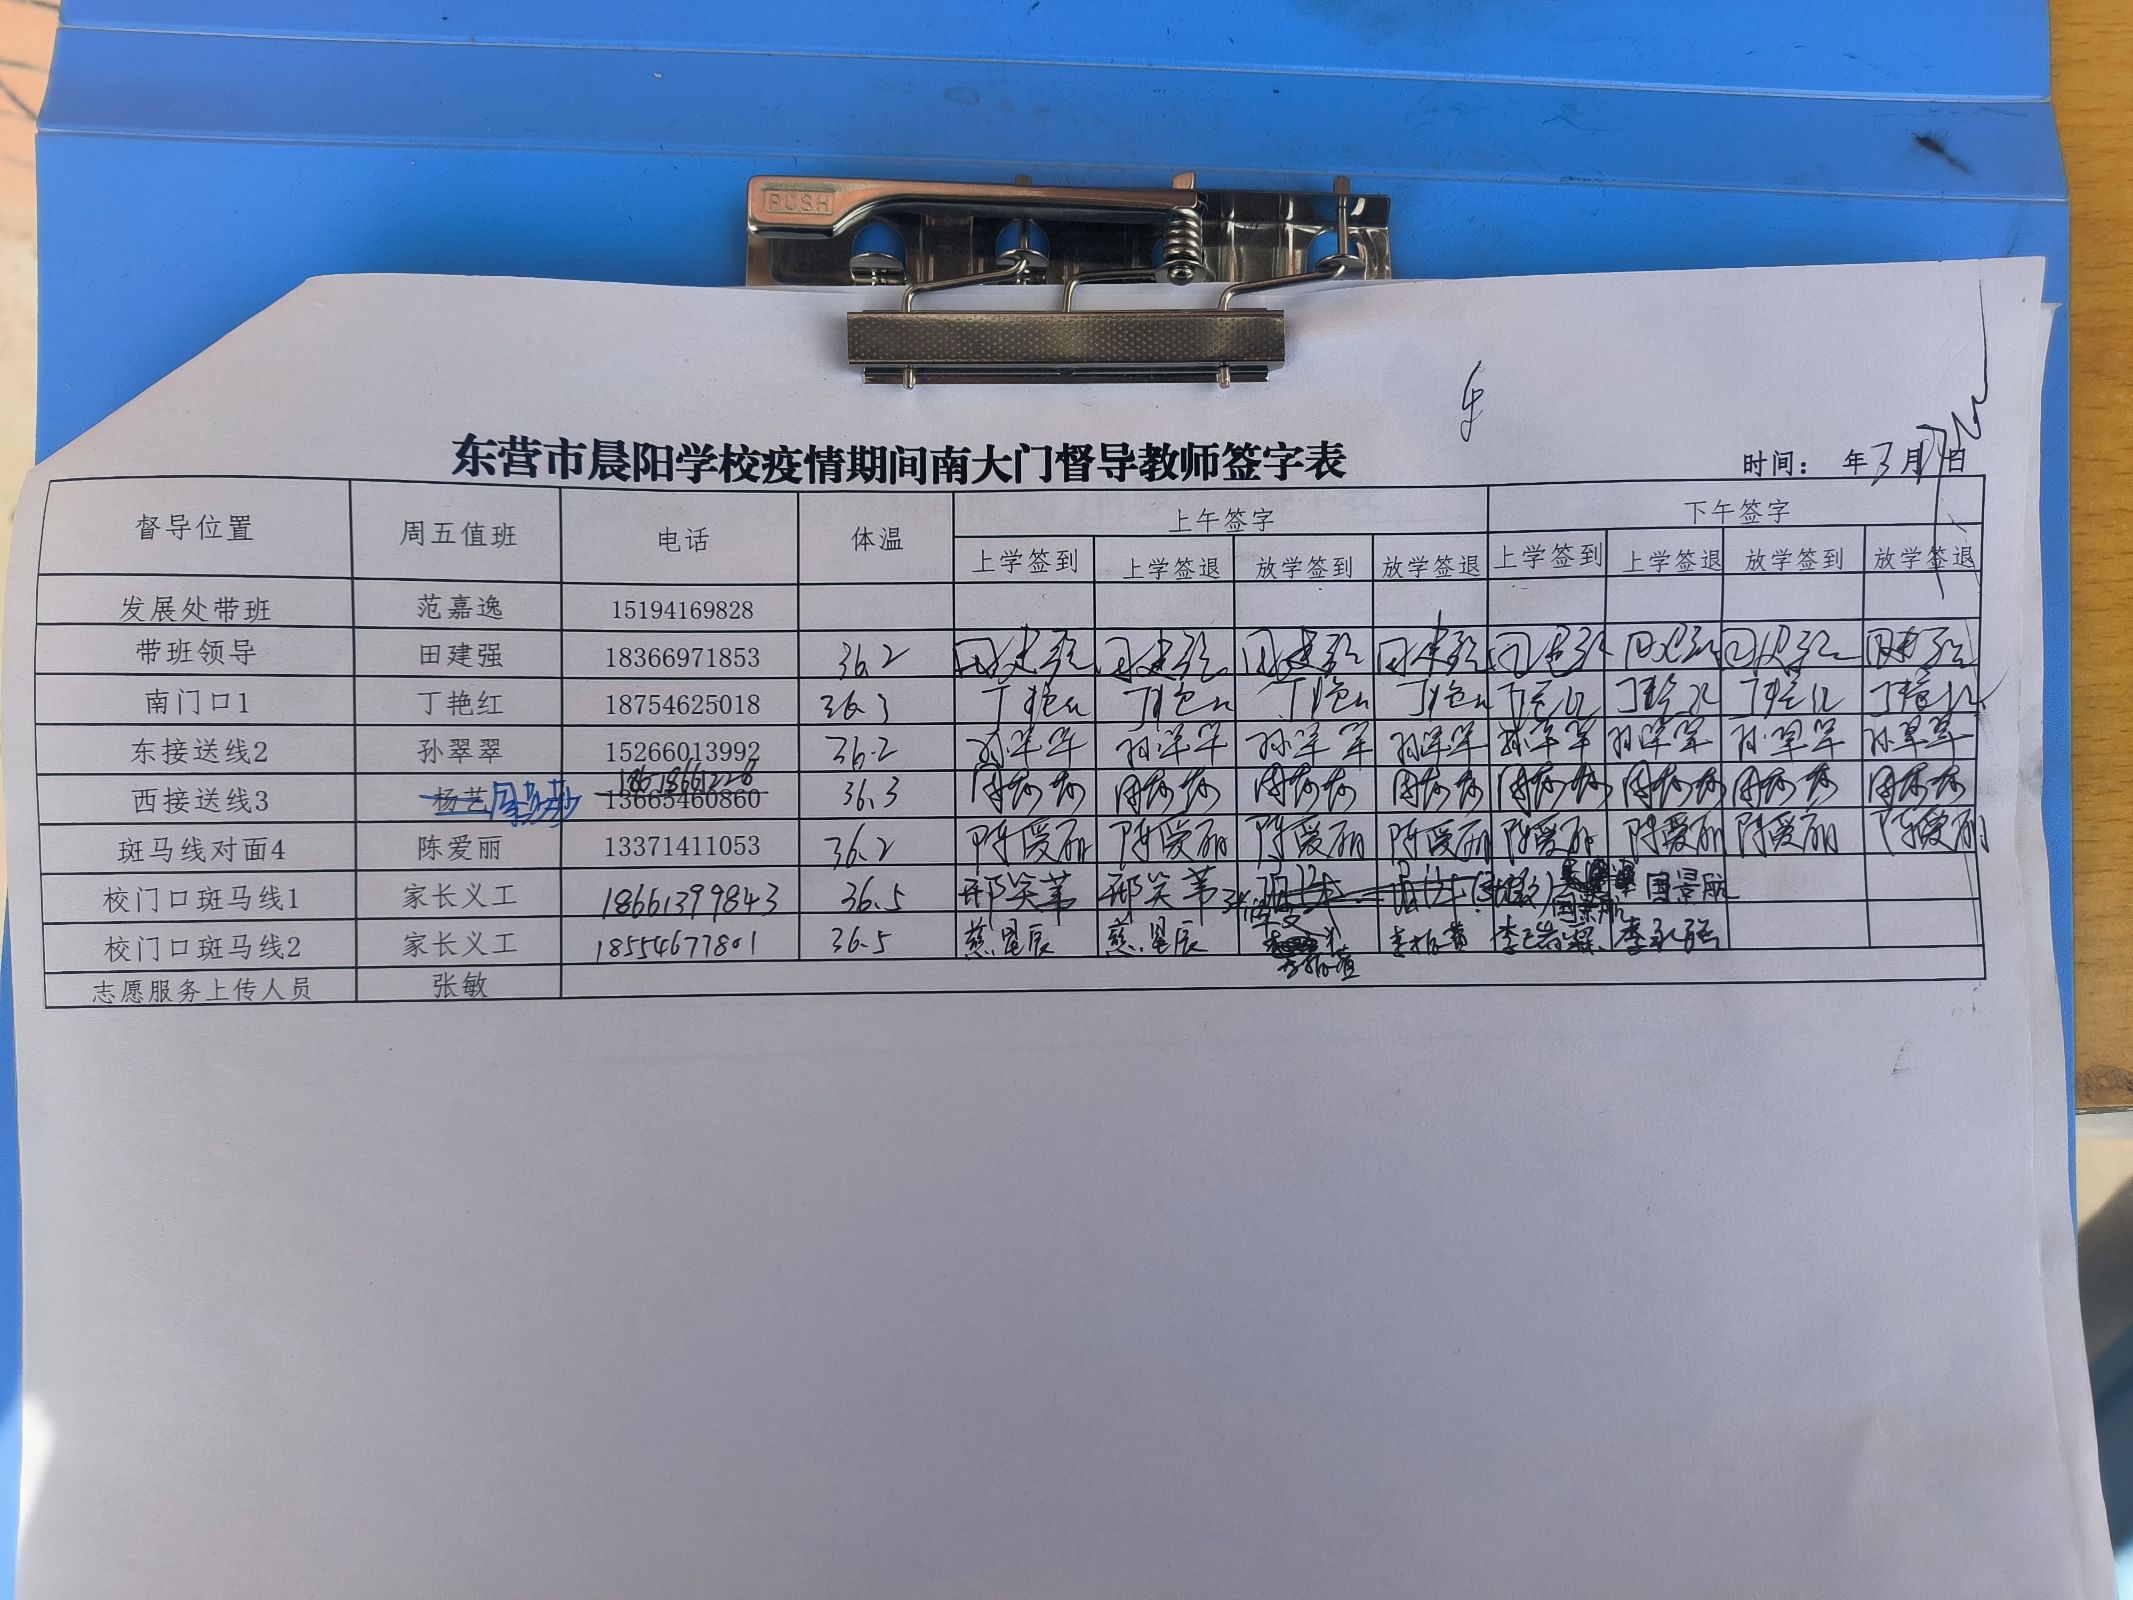 PUSH
东营市晨阳学校疫情期间南大门督导教师签字表
时间: 年3月 日
督导位置 周五值班 电话 体温 上午签字 下午签字
上学签到 上学签退 放学签到 放学签退 上学签到 上学签退 放学签到 放学签退
发展处带班 范嘉逸 15194169828
带班领导 田建强 18366971853 36.2 田建强 田建强 田建强 田建强 田建强 田建强 田建强 田建强
南门口1 丁艳红 18754625018 36.3 丁艳红 丁艳红 丁艳红 丁艳红 丁艳红 丁艳红 丁艳红 丁艳红
东接送线2 孙翠翠 15266013992 36.2 孙翠翠 孙翠翠 孙翠翠 孙翠翠 孙翠翠 孙翠翠 孙翠翠 孙翠翠
西接送线3 杨艺 13665460860 36.3
斑马线对面4 陈爱丽 13371411053 36.2 陈爱丽 陈爱丽 陈爱丽 陈爱丽 陈爱丽 陈爱丽 陈爱丽 陈爱丽
校门口斑马线1 家长义工 18661399843 36.5 邢笑苇 邢笑苇 国景航 国景航
校门口斑马线2 家长义工 18554677801 36.5 慈星辰 慈星辰
志愿服务上传人员 张敏